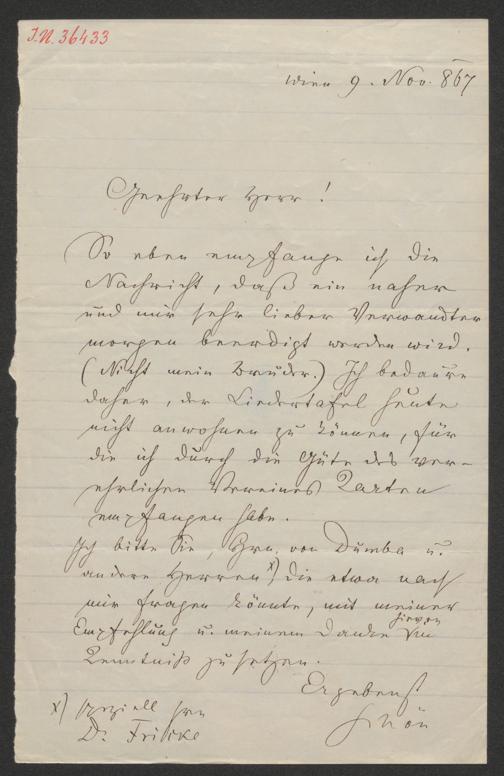 I.N. 36433
Wien 9. Nov. 867
Geehrter Herr!
So eben empfange ich die
Nachricht, daß ein naher
und mir sehr lieber Verwandter
morgen beerdigt werden wird.
(Nicht mein Bruder.) Ich bedaure
daher, der Liedertafel heute
nicht anwohnen zu können, für
die ich durch die Güte des ver-
ehrlichen Vereines Karten
empfangen habe.
Ich bitte Sie, Hrn. von Dumba u.
andere Herren x) die etwa nach
mir fragen könnte, mit meiner
Empfehlung u. meinem Danke hievon in
Kenntniß zu setzen.
Ergebenst
Schön
x) speziell Hrn
Dr.